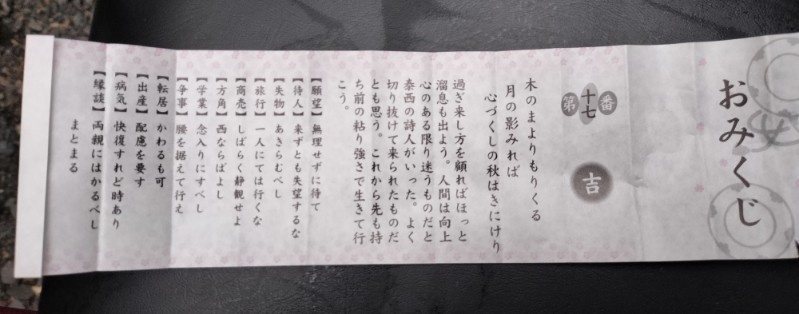 おみくじ
第十七番
吉
木のまよりもりくる
月の影みれば
心づくしの秋はきにけり
過ぎ来し方を顧ればほっと
溜息も出よう。人間は向上
心のある限り迷うものだと
泰西の詩人がいった。よく
切り抜けて来られたものだ
とも思う。これから先も持
ち前の粘り強さで生きて行
こう。
【願望】無理せずに待て
【待人】来ずとも失望するな
【失物】あきらむべし
【旅行】一人にては行くな
【商売】しばらく静観せよ
【方角】西ならばよし
【学業】念入りにすべし
【争事】腰を据えて行え
【転居】かわるも可
【出産】配慮を要す
【病気】快復すれど時あり
【縁談】両親にはかるべし
まとまる